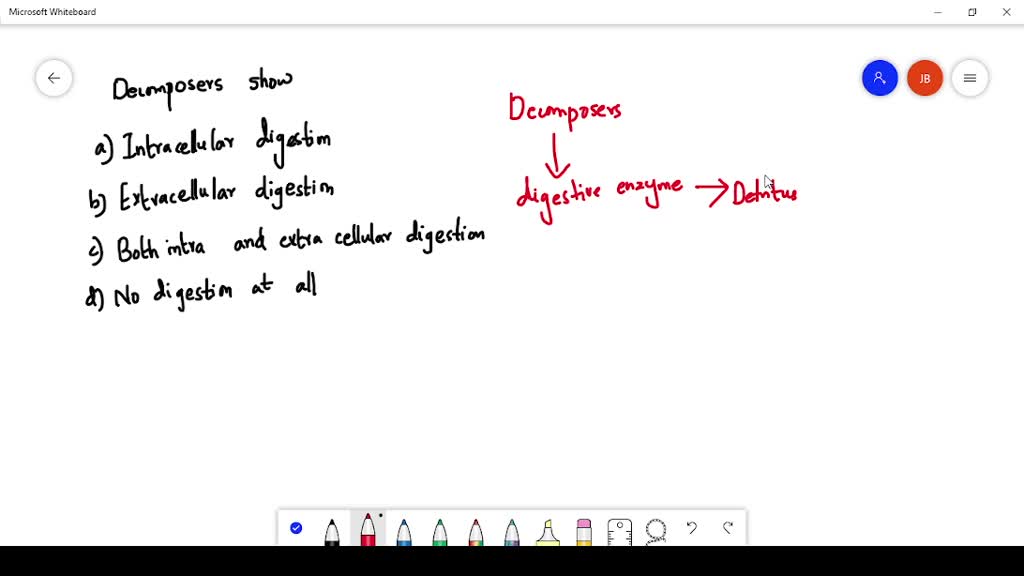 Microsoft Whiteboard
JB
Decomposers show
a) Intracellular digestion
b) Extracellular digestion
c) Both intra and extra cellular digestion
d) No digestion at all
Decomposers
digestive enzyme → Detritus